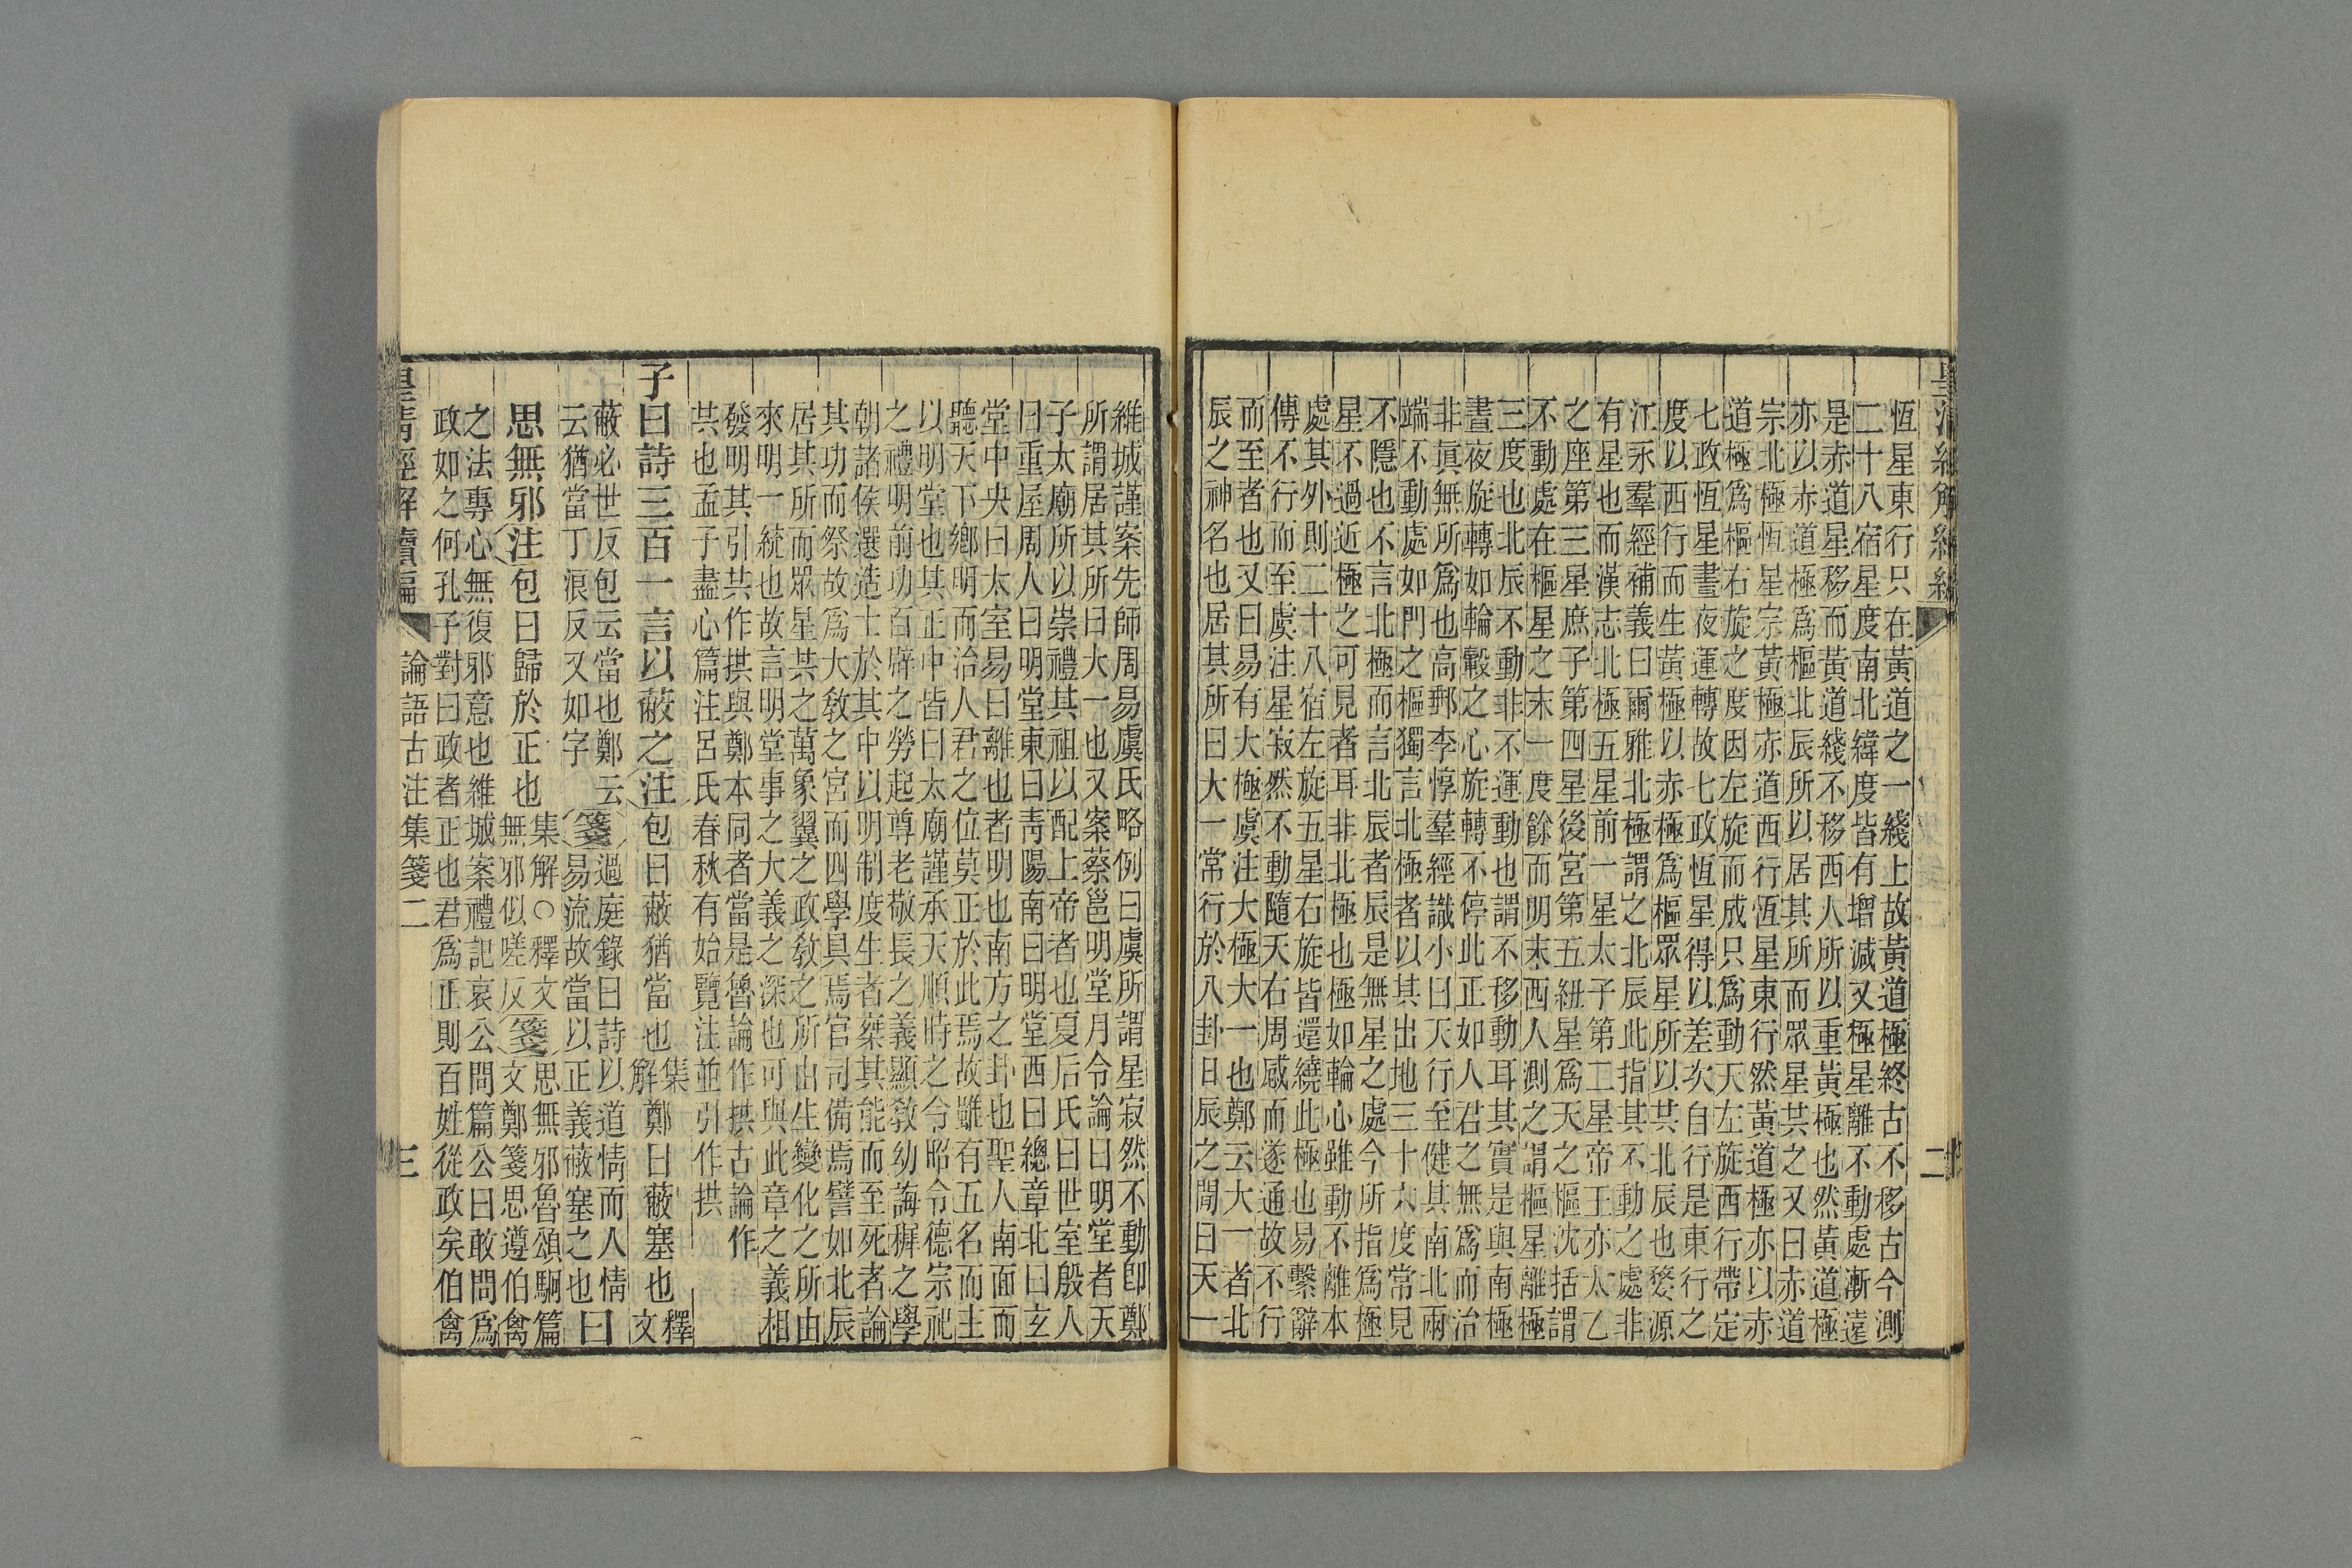 皇清經解續編
二
恆星東行只在黃道之一綫上故黃道極終古不移古今測
二十八宿星度南北緯度皆有增減又極星離不動處漸遠
是赤道星移而黃道綫不移西人所以重黃極也然黃道極
亦以赤道極爲樞北辰所以居其所而眾星共之又曰赤道
宗北極恆星宗黃極赤道西行恆星東行然黃道極亦以赤
道極爲樞右旋之度因左旋而成只爲動天左旋西行帶定
七政恆星晝夜運轉故七政恆星得以差次自行是東行之
度以西行而生黃極以赤極爲樞眾星所以共北辰也婺源
江永羣經補義曰爾雅北極謂之北辰此指其不動之處非
有星也而漢志北極五星前一星太子第二星帝王亦太乙
之座第三星庶子第四星後宮第五紐星爲天之樞沈括謂
不動處在樞星之末一度餘而明末西人測之謂樞星離極
三度也北辰不動非不運動也謂不移動耳其實是與南極
晝夜旋轉如輪轂之心旋轉不停此正如人君之無爲而治
非眞無所爲也高郵李惇羣經識小曰天行至健其南北兩
端不動處如門之樞獨言北極者以其出地三十六度常見
不隱也不言北極而言北辰者辰是無星之處今所指爲極
星不過近極之可見者耳非北極也極如輪心雖動不離本
處其外則二十八宿左旋五星右旋皆還繞此極也易繫辭
傳不行而至虞注星寂然不動隨天右周感而遂通故不行
而至者也又曰易有大極虞注大極大一也鄭云大一者北
辰之神名也居其所曰大一常行於八卦日辰之閒曰天一
維城謹案先師周易虞氏略例曰虞所謂星寂然不動卽鄭
所謂居其所曰大一也又案蔡邕明堂月令論曰明堂者天
子太廟所以崇禮其祖以配上帝者也夏后氏曰世室殷人
曰重屋周人曰明堂東曰靑陽南曰明堂西曰總章北曰玄
堂中央曰太室易曰離也者明也南方之卦也聖人南面而
聽天下鄉明而治人君之位莫正於此焉故雖有五名而主
以明堂也其正中皆曰太廟謹承天順時之令昭令德宗祀
之禮明前功百辟之勞起尊老敬長之義顯敎幼誨稺之學
朝諸侯選造士於其中以明制度生者椉其能而至死者論
其功而祭故爲大敎之宮而四學具焉官司備焉譬如北辰
居其所而眾星共之萬象翼之政敎之所由生變化之所由
來明一統也故言明堂事之大義之深也可與此章之義相
發明其引共作拱與鄭本同者當是魯論作拱古論作
共也孟子盡心篇注呂氏春秋有始覽注並引作拱
子曰詩三百一言以蔽之注包曰蔽猶當也集解鄭曰蔽塞也釋文
蔽必世反包云當也鄭云
云猶當丁浪反又如字
箋過庭錄曰詩以道情而人情
易流故當以正義蔽塞之也曰
思無邪注包曰歸於正也集解○釋文
無邪似嗟反箋思無邪魯頌駉篇
文鄭箋思遵伯禽
之法專心無復邪意也維城案禮記哀公問篇公曰敢問爲
政如之何孔子對曰政者正也君爲正則百姓從政矣伯禽
皇淸經解續編
論語古注集箋二
三